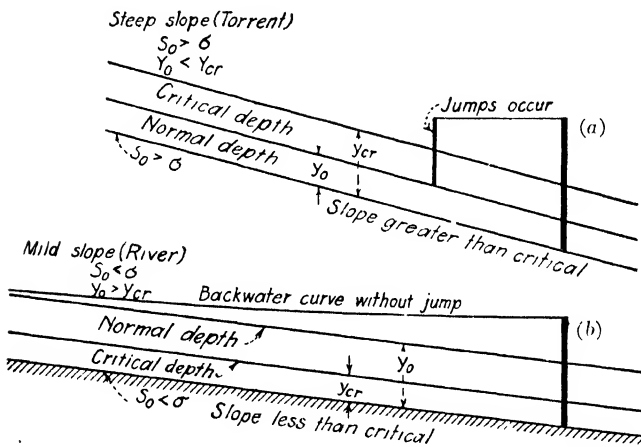 Steep slope (Torrent)
S₀ > σ
Y₀ < Ycr
Critical depth
Normal depth
S₀ > σ
Ycr
y₀
Jumps occur
(a)
Slope greater than critical
Mild slope (River)
S₀ < σ
Y₀ > Ycr
Backwater curve without jump
(b)
Normal depth
Critical depth
y₀
Ycr
S₀ < σ
Slope less than critical